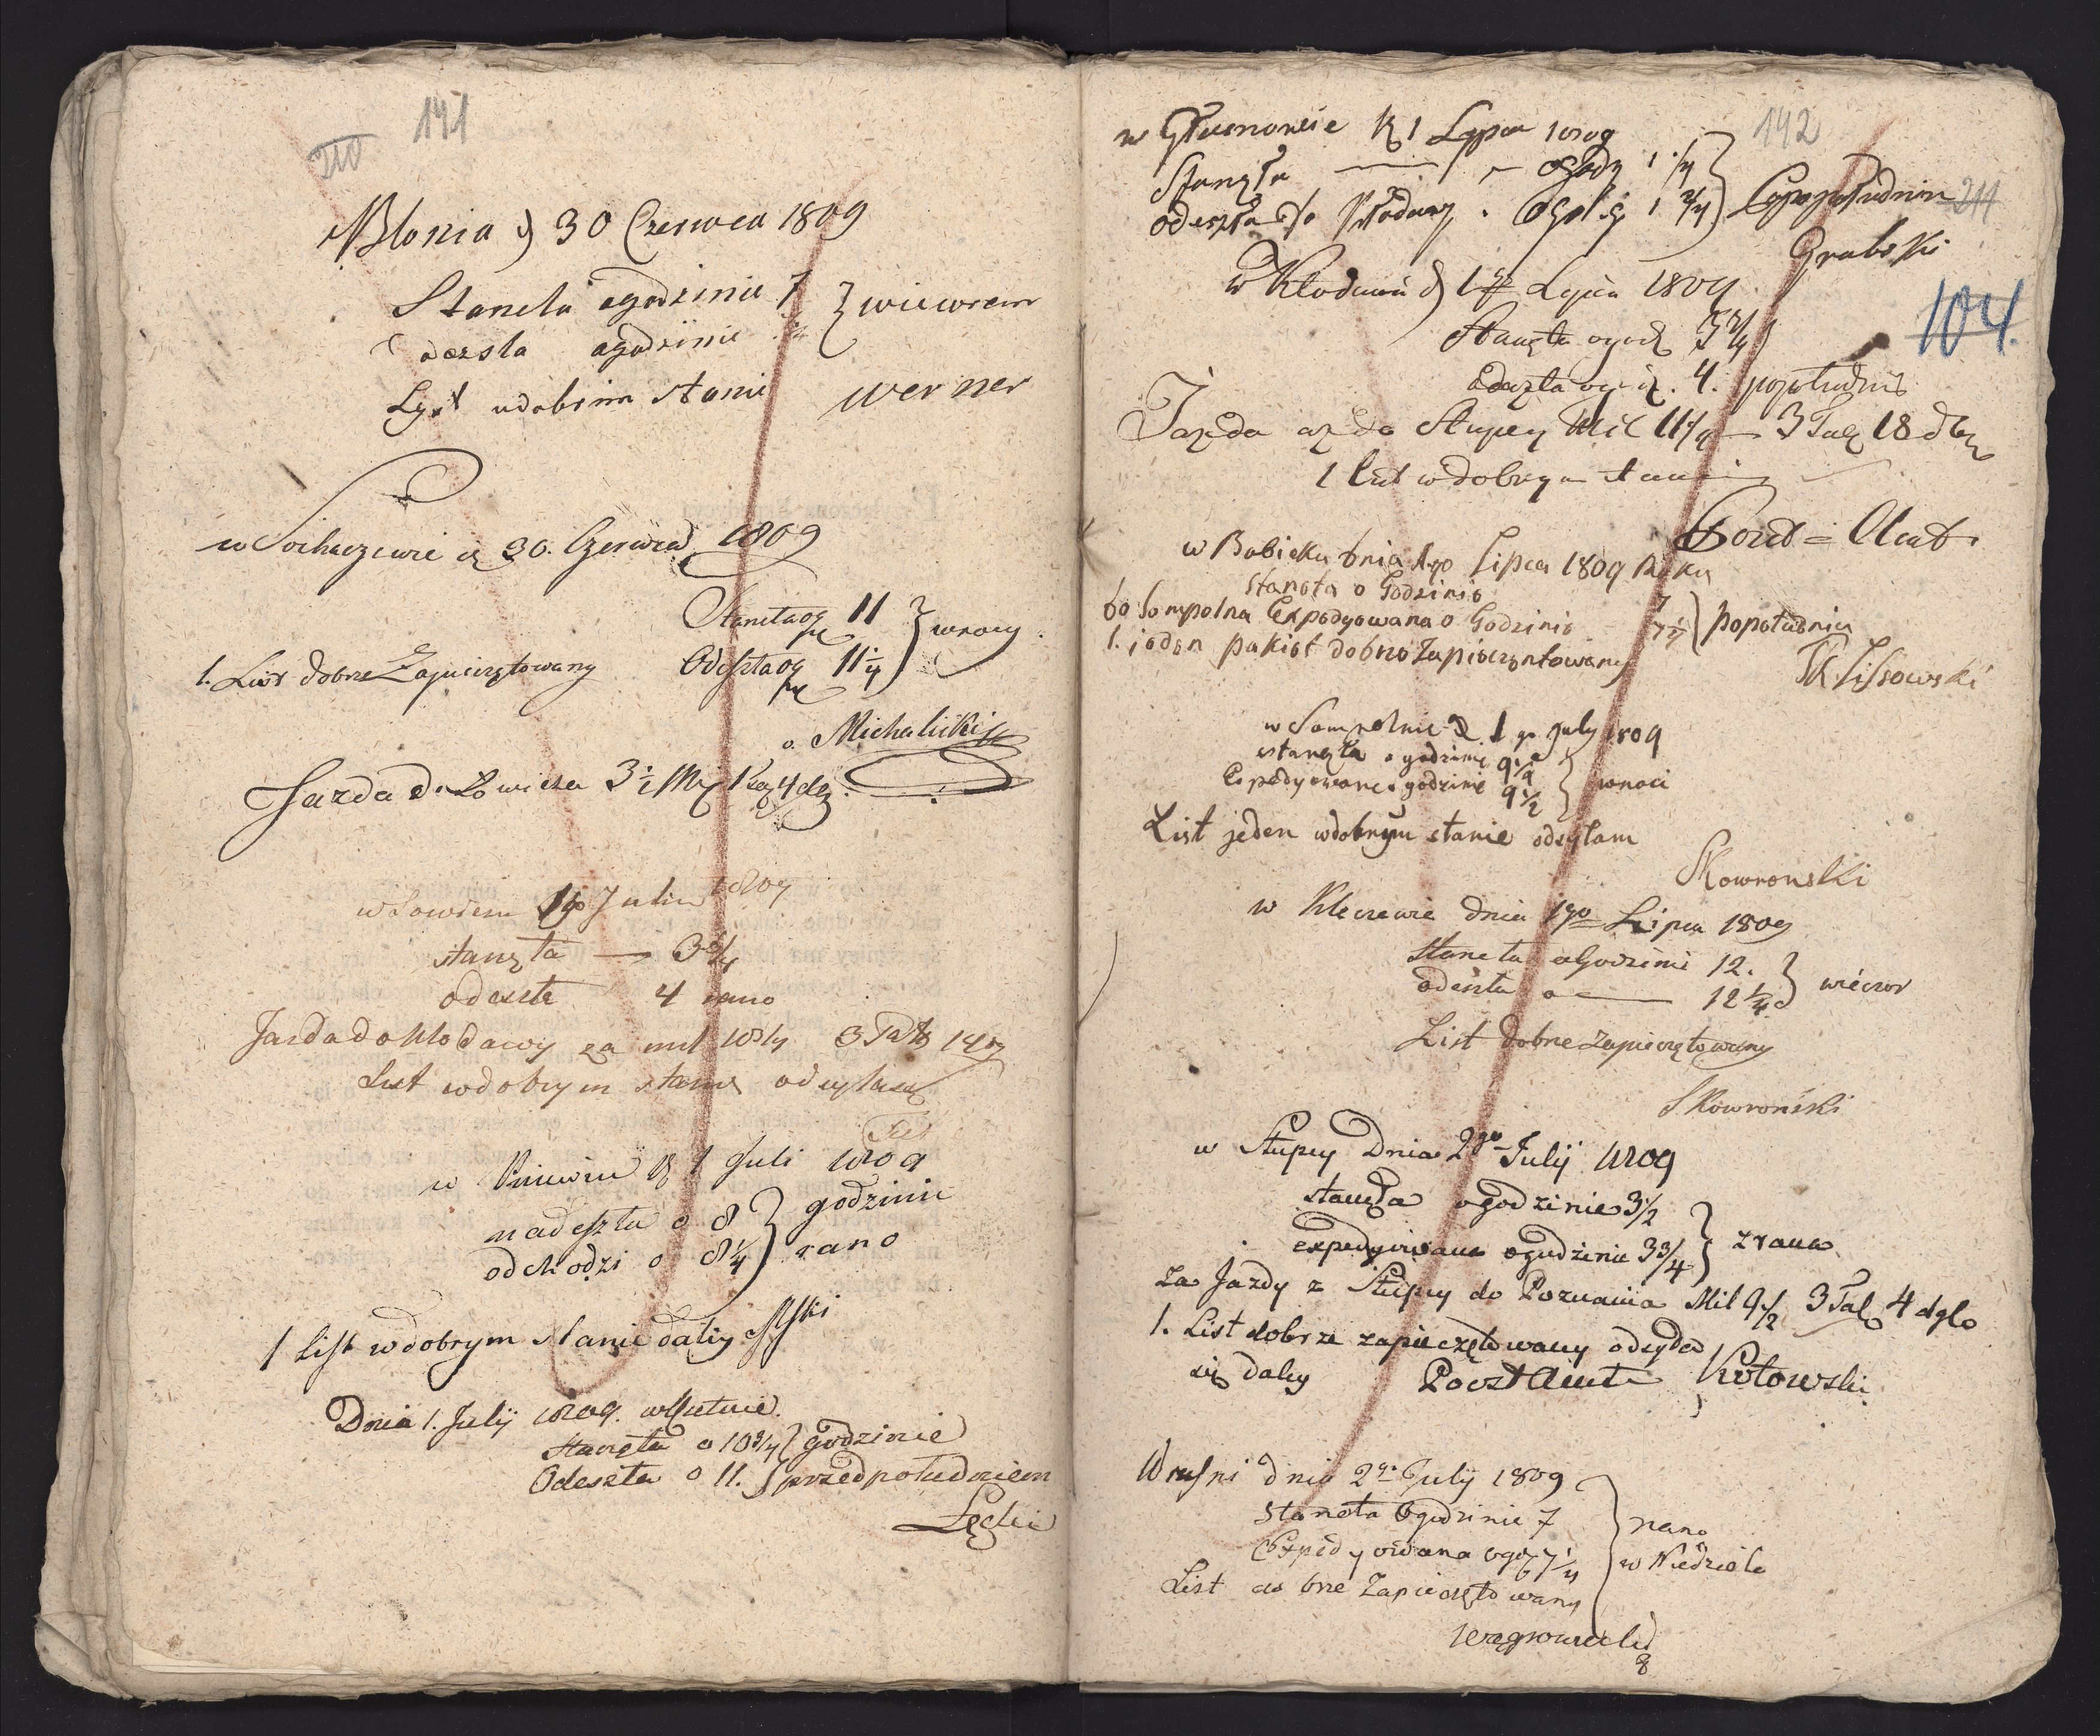 141
210
w Blonia d 30 Czerwca 1809
Staneła ogodzinie 7 } wiewrem
odezsla ogodzinie
Lyst wdobrim stanie werner
w Sochaczewie d 30. Czerwca 1809
Staneła og 11 } wnocy
1. List dobrze Zapieczętowany Odeszła og 11 1/4
Michalicki
Jazda do Łowicza 3 1/2 Mil 1 tal 4 dg
w Lowiczu 1go Julii 1809
stanęła — 3 3/4
odeszła 4 rano
Jazda do Kłodawy za mil 10 3/4 3 Tal 14
List wdobrym stanie odsyłam
w Kniewiu d 1 Juli 1809
nadeszła o 8 } godzinie
odchodzi o 8 1/4 } rano
1 List wdobrym stanie daliy
Dnia 1. July 1809. wKutnie
Stanęła o 10 3/4 } godzinie
Odeszła o 11. } przedpołudniem
Łącki
142
w Głznowie d 1 Lypca 1809
Stanęła — ogodz 1 1/4
odeszła do Kłodawy ogodz 1 2/4 } popołudniu
211
Grabski
w Kłodawie d 1 Lypca 1809
104.
Stanęła ogodz 3 3/4
odeszła ogodz. 4. popołudniu
Jazda az do Słupcy Mil 11 1/4 — 3 Tal 18 dg
1 list wdobrym stanie
Poczt = Amt
w Babieku dnia 1go Lipca 1809 Roku
Stanoła o Godzinie 7
do Sompolna Expedyowana o Godzinie 7 1/4 } popołudniu
1. jeden pakiet dobrze zapieczentowany
K. Lissowski
w Sompolnie d 1go July 1809
stanęła o godzinie 9 1/4
Expedyowane o godzinie 9 1/2 } wnoci
List jeden wdobrym stanie odsyłam
Skowronski
w Kleczewie dnia 1go Lipca 1809
Staneła oGodzinie 12. } wieczor
odeszła o — 12 1/4
List dobrze zapieczętowany
Skowroński
w Słupcy Dnia 2go Julij 1809
stanęła ogodzinie 3 1/2
expedyiowana ogodzinie 3 3/4 } z rana
za Jazdy z Słupcy do Poznania Mil 9 1/2 3 Tal 4 dg
1. List dobrze zapieczętowany odsyła
się daley Poczt Amt Kotowski
Wrzesni dnia 2go Julij 1809
Staneła ogodzinie 7 } rano
Expedyowana ogdz 7 1/4 } w Niedziele
List dobrze Zapieczętowany
Wągrowiecki